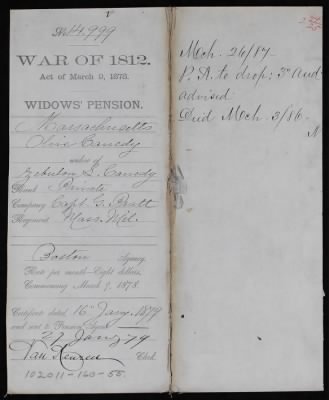 No. 14,999
WAR OF 1812.
Act of March 9, 1878.
WIDOWS' PENSION.
Massachusetts
Olive Canedy
widow of
Zebulon L. Canedy
Rank Private
Company Capt. G. Pratt
Regiment Mass. Mil.
Boston Agency.
Rate per month—Eight dollars,
Commencing March 9, 1878.
Certificate dated 16th Jany. 1879
and sent to Pension Agent
27 Jany 79
Clerk.
102011-160-55
Mch. 26/87
P. A. to drop; 3d Aud
advised
Died Mch. 3/86.